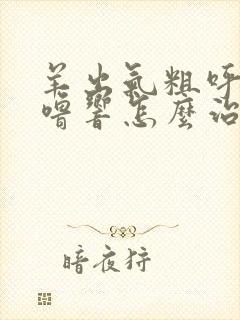 羊出氣粗呼
嚕響怎麼治
暗夜狩